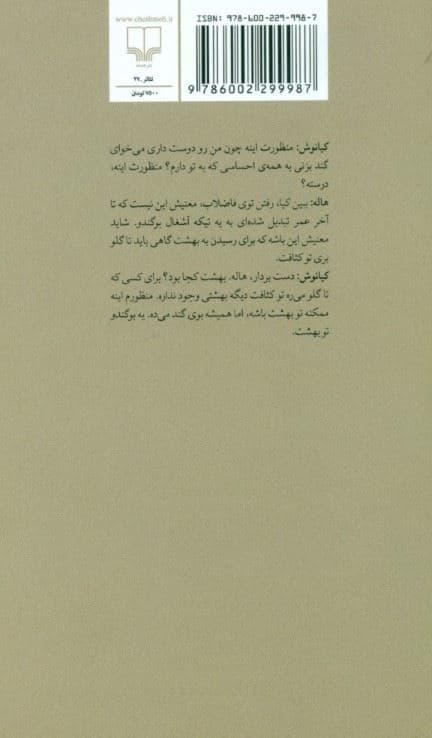 www.cheshmeh.ir
ISBN: 978-600-229-998-7
9 786002 299987
نشرچشمه
تئاتر ـ ۲۷
۷۵۰۰ تومان
کیانوش: منظورت اینه چون من رو دوست داری می‌خوای
گند بزنی به همه‌ی احساسی که به تو دارم؟ منظورت اینه،
درسته؟
هاله: ببین کیا، رفتن توی فاضلاب، معنیش این نیست که تا
آخر عمر تبدیل شده‌ای به یه تیکه آشغال بوگندو. شاید
معنیش این باشه که برای رسیدن به بهشت گاهی باید تا گلو
بری تو کثافت.
کیانوش: دست بردار، هاله. بهشت کجا بود؟ برای کسی که
تا گلو می‌ره تو کثافت دیگه بهشتی وجود نداره. منظورم اینه
ممکنه تو بهشت باشه، اما همیشه بوی گند می‌ده. یه بوگندو
تو بهشت.